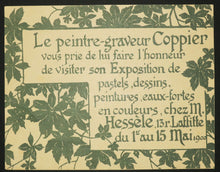 Le peintre-graveur Coppier
vous prie de lui faire l'honneur
de visiter son Exposition de
pastels, dessins,
peintures, eaux-fortes
en couleurs, chez M.
Hessèle, 13 r Laffitte
du 1er au 15 Mai